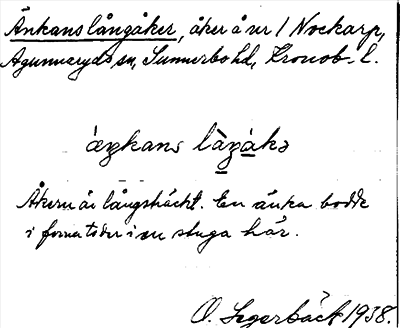 Änkans långåker, åker å nr 1 Nockarp,
Agunnaryds sn, Sunnerbo hd, Kronob. l.
áŋkans làŋákə
Åkern är långsträckt. En änka bodde
i forna tider i en stuga här.
O. Segerbäck 1938.